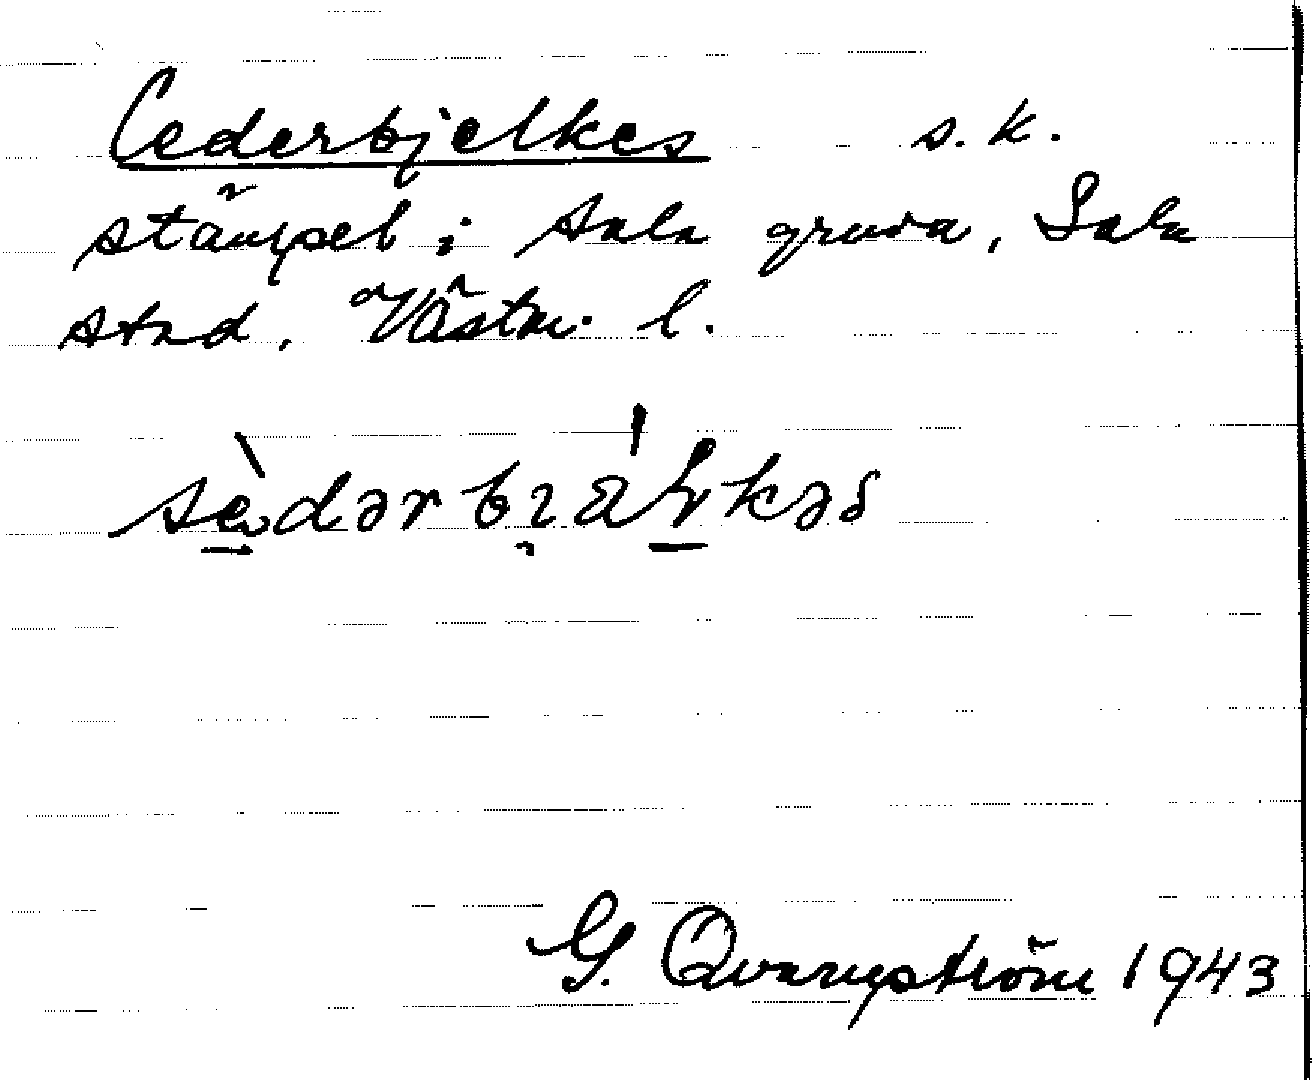 Cederbjelkes s.k.
stämpel i Sala gruva, Sala
stad, Västm. l.
sèdərbɿäĺkəs
G. Qvarngström 1943